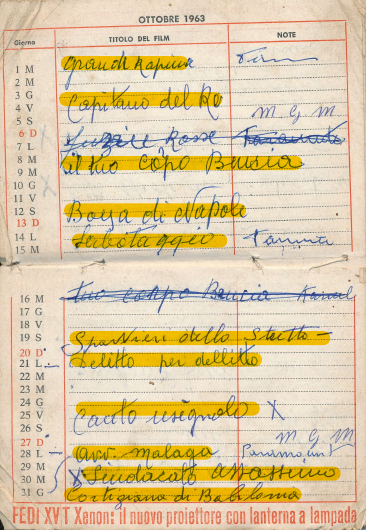 OTTOBRE 1963
Giorno TITOLO DEL FILM NOTE
1 M Grandi Rapine
2 M
3 G Capitano del Re
4 V
5 S M G M
6 D Rosse
7 L
8 M il tuo corpo Brucia
9 M
10 G
11 V
12 S Boya di Napoli
13 D
14 L Sabotaggio
15 M
16 M tuo corpo Brucia
17 G
18 V
19 S Sparvieri dello Stretto
20 D
21 L Delitto per delitto
22 M
23 M
24 G
25 V Canto usignolo X
26 S
27 D M G M
28 L avv. malaga
29 M
30 M X Sindacato assassino
31 G Cortigiana di Babilonia
FEDI XVT Xenon: il nuovo proiettore con lanterna a lampada